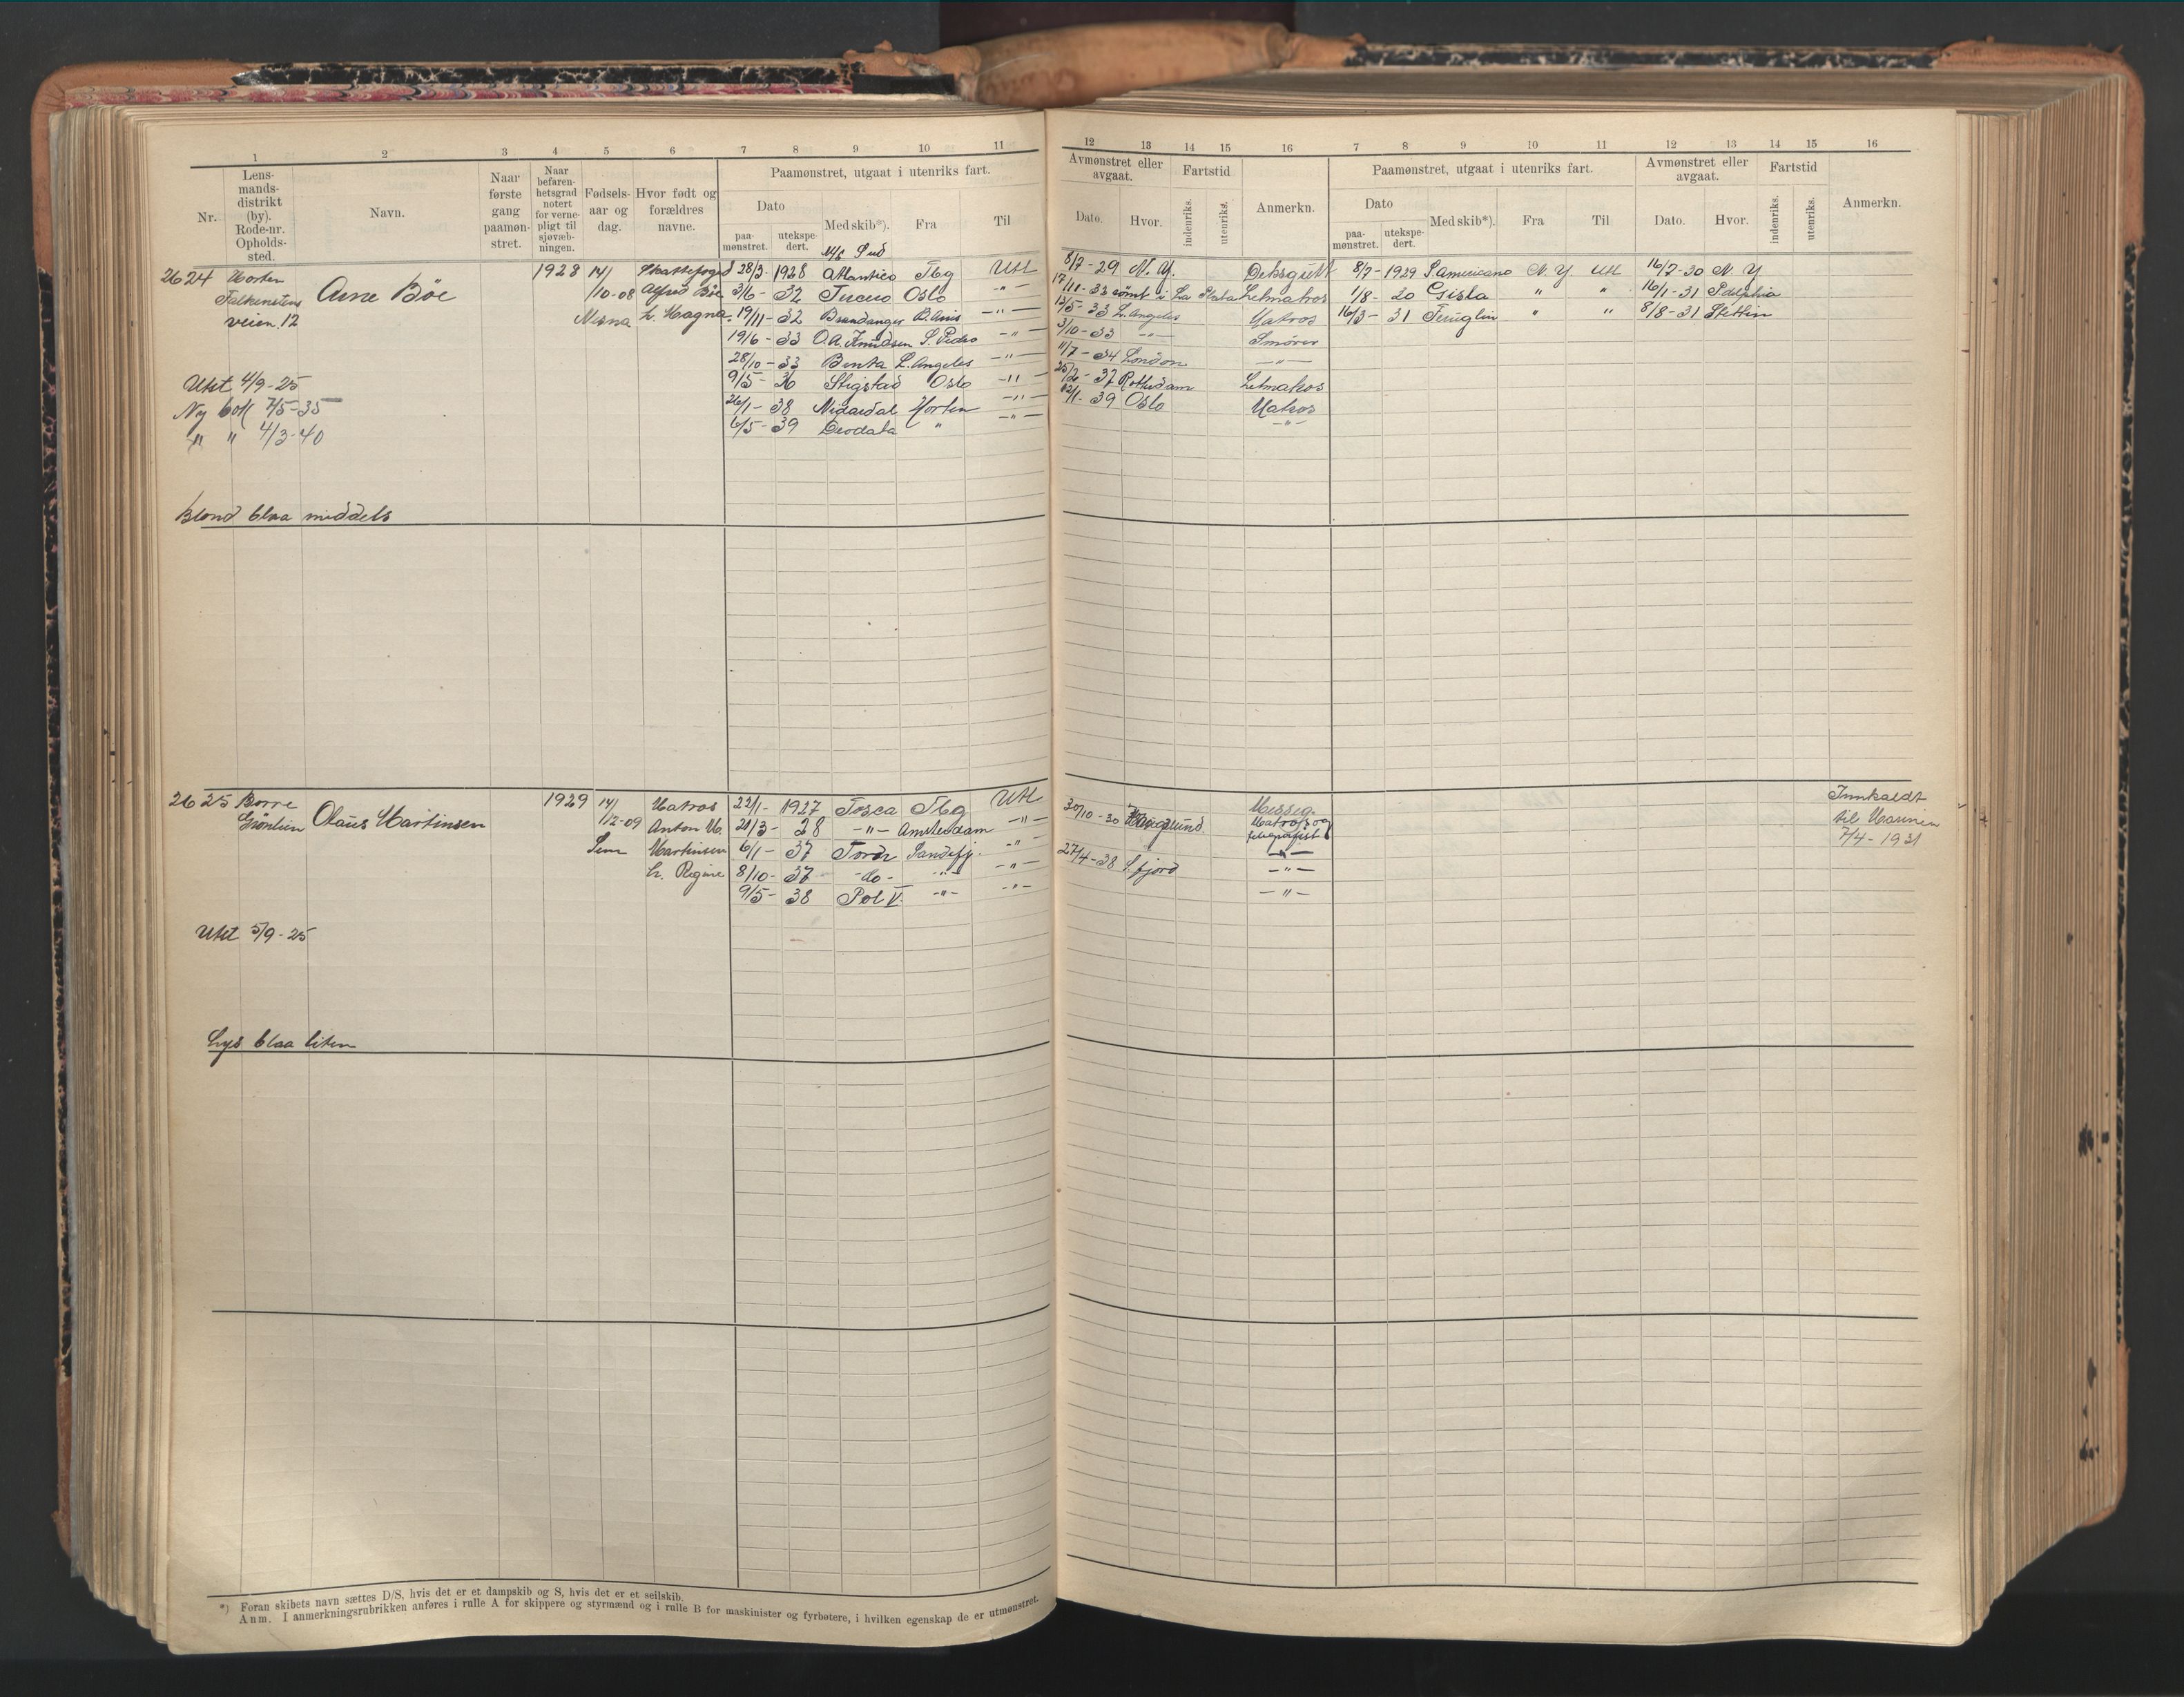 1 2 3 4 5 6 7 8 9 10 11
Nr. Lensmandsdistrikt (by). Rode-nr. Opholdssted. Navn. Naar første gang paamønstret. Naar befarenhetsgrad notert for vernepligt til sjøvæbningen. Fødselsaar og dag. Hvor født og forældres navne. Paamønstret, utgaat i utenriks fart.
Dato paamønstret. utekspedert. Med skib*). Fra Til
12 13 14 15 16 7 8 9 10 11 12 13 14 15 16
Avmønstret eller avgaat. Fartstid Anmerkn. Paamønstret, utgaat i utenriks fart. Avmønstret eller avgaat. Fartstid Anmerkn.
Dato. Hvor. indenriks. utenriks. Dato paamønstret. utekspedert. Med skib*). Fra Til Dato. Hvor. indenriks. utenriks.
M/S Sud
2624 Horten Arne Böe 1928 14/ Skattefoged 28/3- 1928 Atlantico Tbg Utl 8/7-29 N.Y. Deksgutt 8/7-1929 S americano N.Y Utl 16/7-30 N.Y
Falkenstens /10-08 Alfred Böe 3/6- 32 Tercero Oslo -"- 17/11-32 römt i La Plata Letmatros 1/8- 30 Gisla " " 16/1-31 Pdelphia
veien.12 h. Magna 19/11-32 Brandanger B.Airis -"- 13/5-33 L.Angeles Matros 16/3- 31 Feruglin " " 8/8-31 Stettin
19/6-33 O.A.Knudsen S.Pedro -"- 3/10-33 -"- Smörer
28/10-33 Benta L.Angeles -"- 11/7-34 London -"-
Utst 4/9-25 9/5-36 Stigstad Oslo -"- 37 Rotterdam Letmatros
Ny bok 7/5-35 26/1-38 Nidardal Horten -"- 39 Oslo Matros
" " 4/3-40 6/5-39 Deodata " -"- -"-
Blond blaa middels
2625 Borre Olaus Martinsen 1929 14/ Matros 22/1- 1927 Tosca Tbg Utl 30/10-30 Messeg. Innkaldt
Grönlien /12-09 Anton M. 21/3-28 -"- Amsterdam -"- Matros og til Marinen
Sem Martinsen 6/1-37 Thordr Sandefj. -"- telegrafist 7/4-1931
h. Regine 8/10-37 -do- -"- -"- 27/4-38 S.fjord -"-
9/5-38 Pol V. -"- -"- -"-
Utst 5/9-25
Lys blaa liten
*) Foran skibets navn sættes D/S, hvis det er et dampskib og S, hvis det er et seilskib.
Anm. I anmerkningsrubrikken anføres i rulle A for skippere og styrmænd og i rulle B for maskinister og fyrbøtere, i hvilken egenskap de er utmønstret.